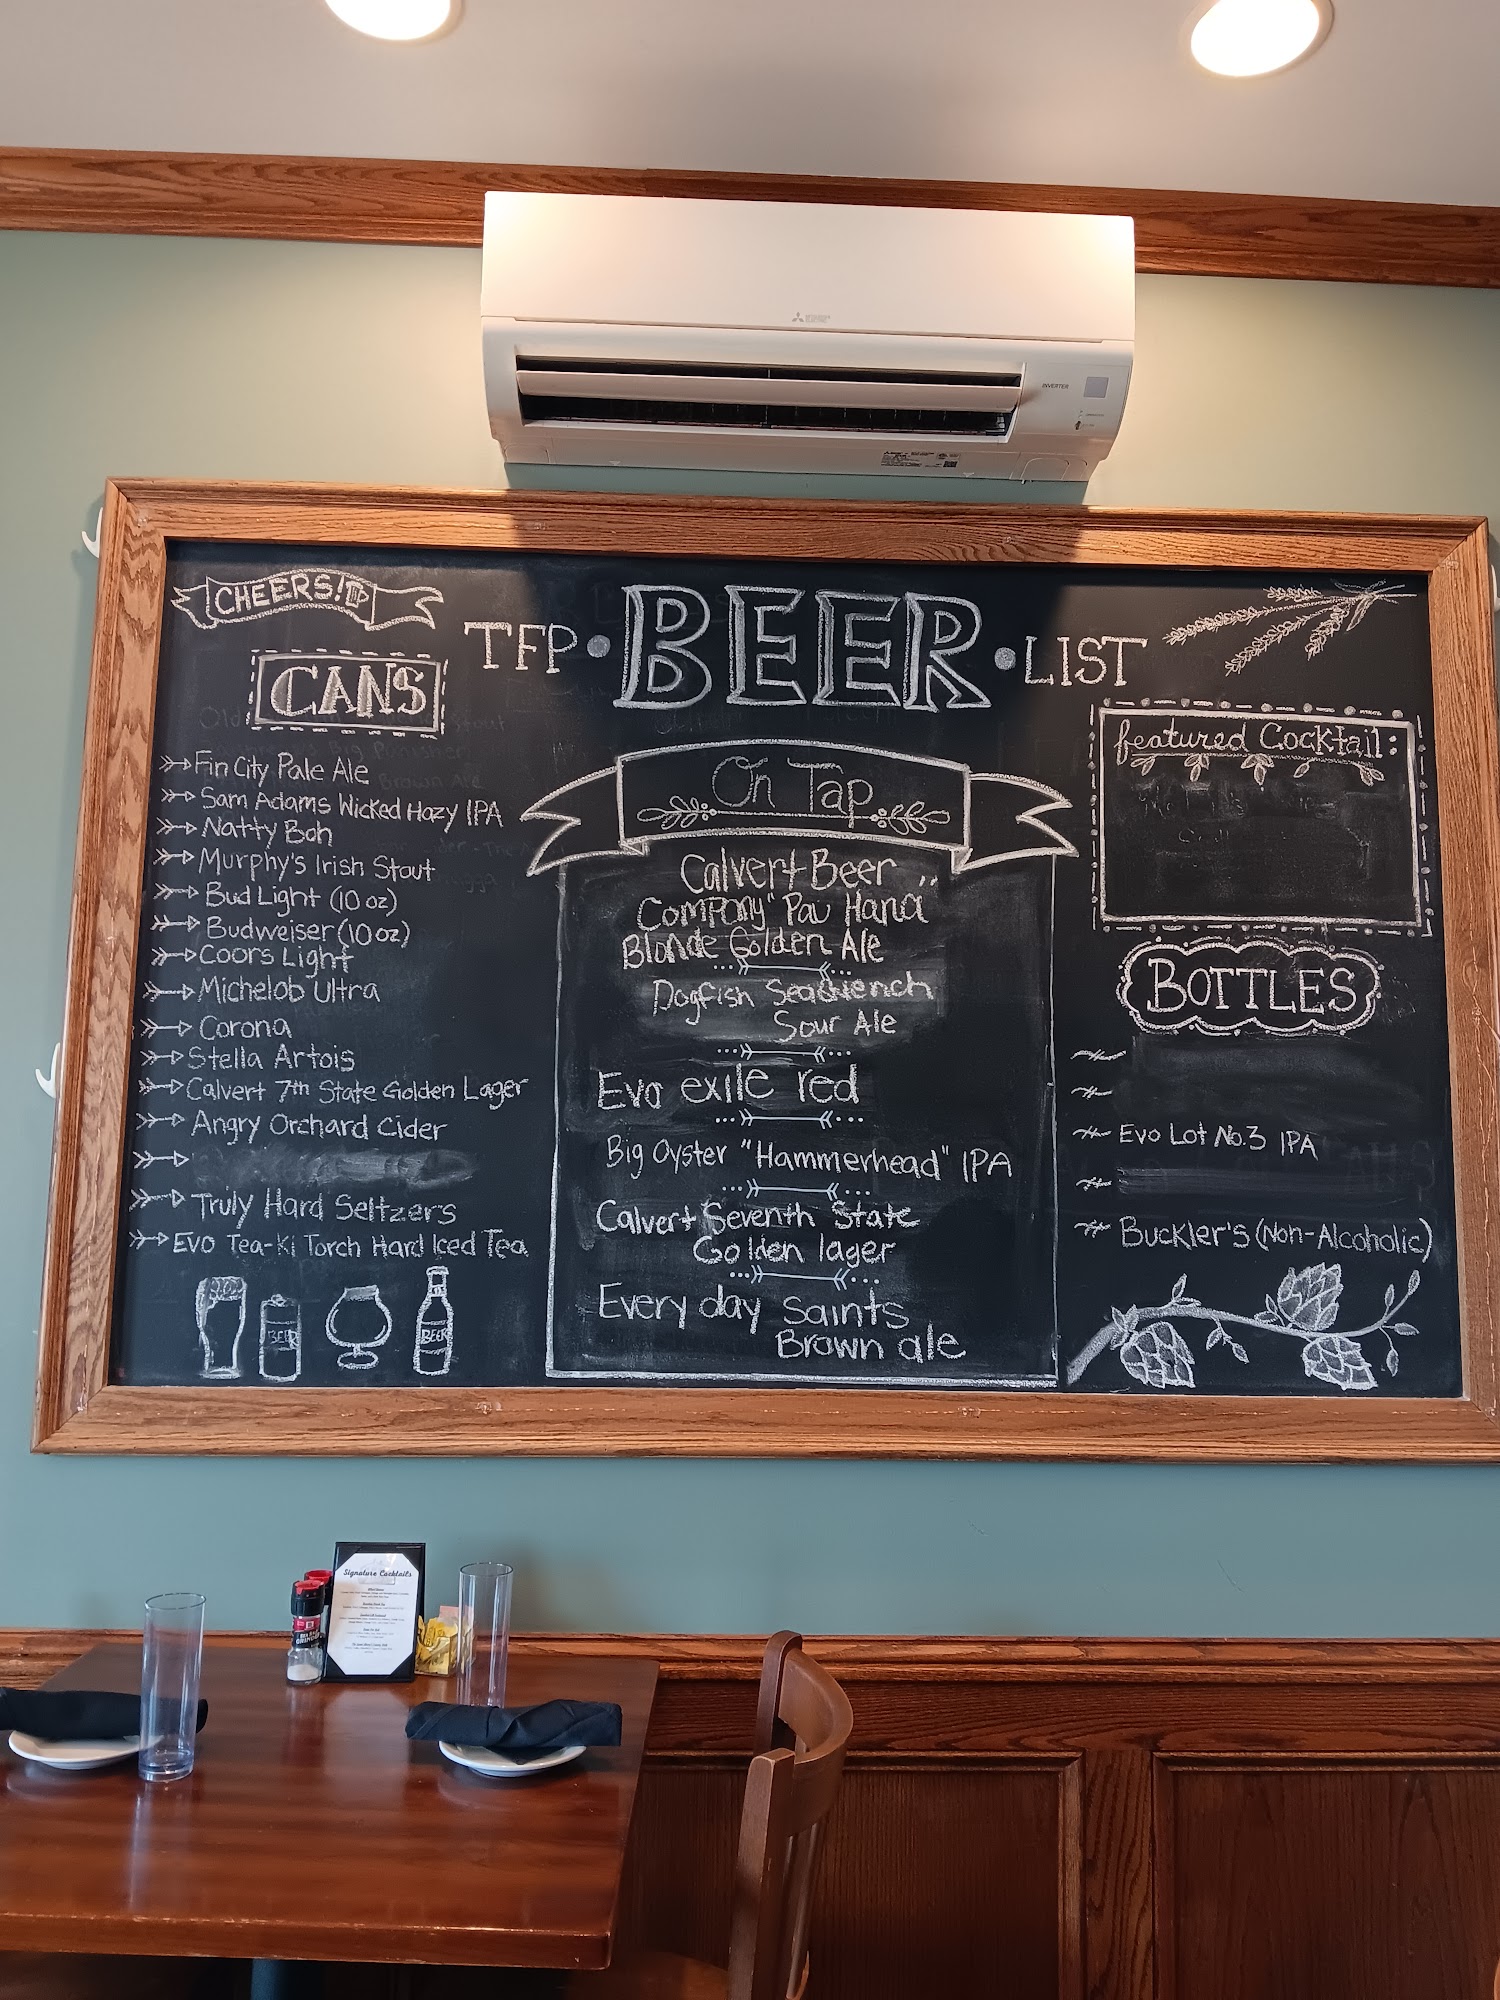 MITSUBISHI
ELECTRIC
INVERTER
CHEERS!
TFP • BEER • LIST
CANS
Fin City Pale Ale
Sam Adams Wicked Hazy IPA
Natty Boh
Murphy's Irish Stout
Bud Light (10 oz)
Budweiser (10 oz)
Coors Light
Michelob Ultra
Corona
Stella Artois
Calvert 7th State Golden Lager
Angry Orchard Cider
Truly Hard Seltzers
Evo Tea-Ki Torch Hard Iced Tea
BEER
BEER
On Tap
Calvert Beer
Company "Pau Hana"
Blonde Golden Ale
Dogfish Seaquench
Sour Ale
Evo exile red
Big Oyster "Hammerhead" IPA
Calvert Seventh State
Golden lager
Every day Saints
Brown ale
featured Cocktail:
BOTTLES
Evo Lot No.3 IPA
Buckler's (Non-Alcoholic)
Signature Cocktails